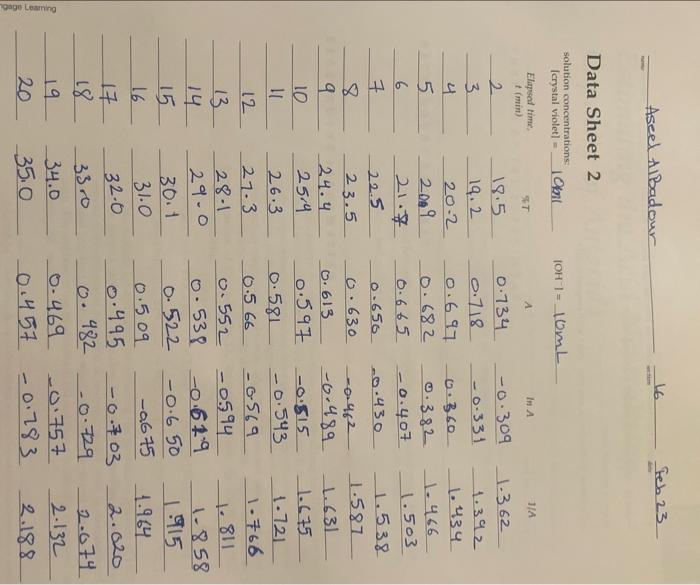 ngage Learning
Aseel AlBadour 16 Feb 23
name section date
Data Sheet 2
solution concentrations:
[crystal violet] = 10ml [OH⁻] = 10mL
Elapsed time, t (min) %T A ln A 1/A
2 18.5 0.734 -0.309 1.362
3 19.2 0.718 -0.331 1.392
4 20.2 0.697 0.360 1.434
5 20.9 0.682 0.382 1.466
6 21.7 0.665 -0.407 1.503
7 22.5 0.650 -0.430 1.538
8 23.5 0.630 -0.462 1.587
9 24.4 0.613 -0.489 1.631
10 25.4 0.597 -0.515 1.675
11 26.3 0.581 -0.543 1.721
12 27.3 0.566 -0.569 1.766
13 28.1 0.552 -0594 1.811
14 29.0 0.538 -0.619 1.858
15 30.1 0.522 -0.650 1.915
16 31.0 0.509 -0.675 1.964
17 32.0 0.495 -0.703 2.020
18 33.0 0.482 -0.729 2.074
19 34.0 0.469 -0.757 2.132
20 35.0 0.457 -0.783 2.188